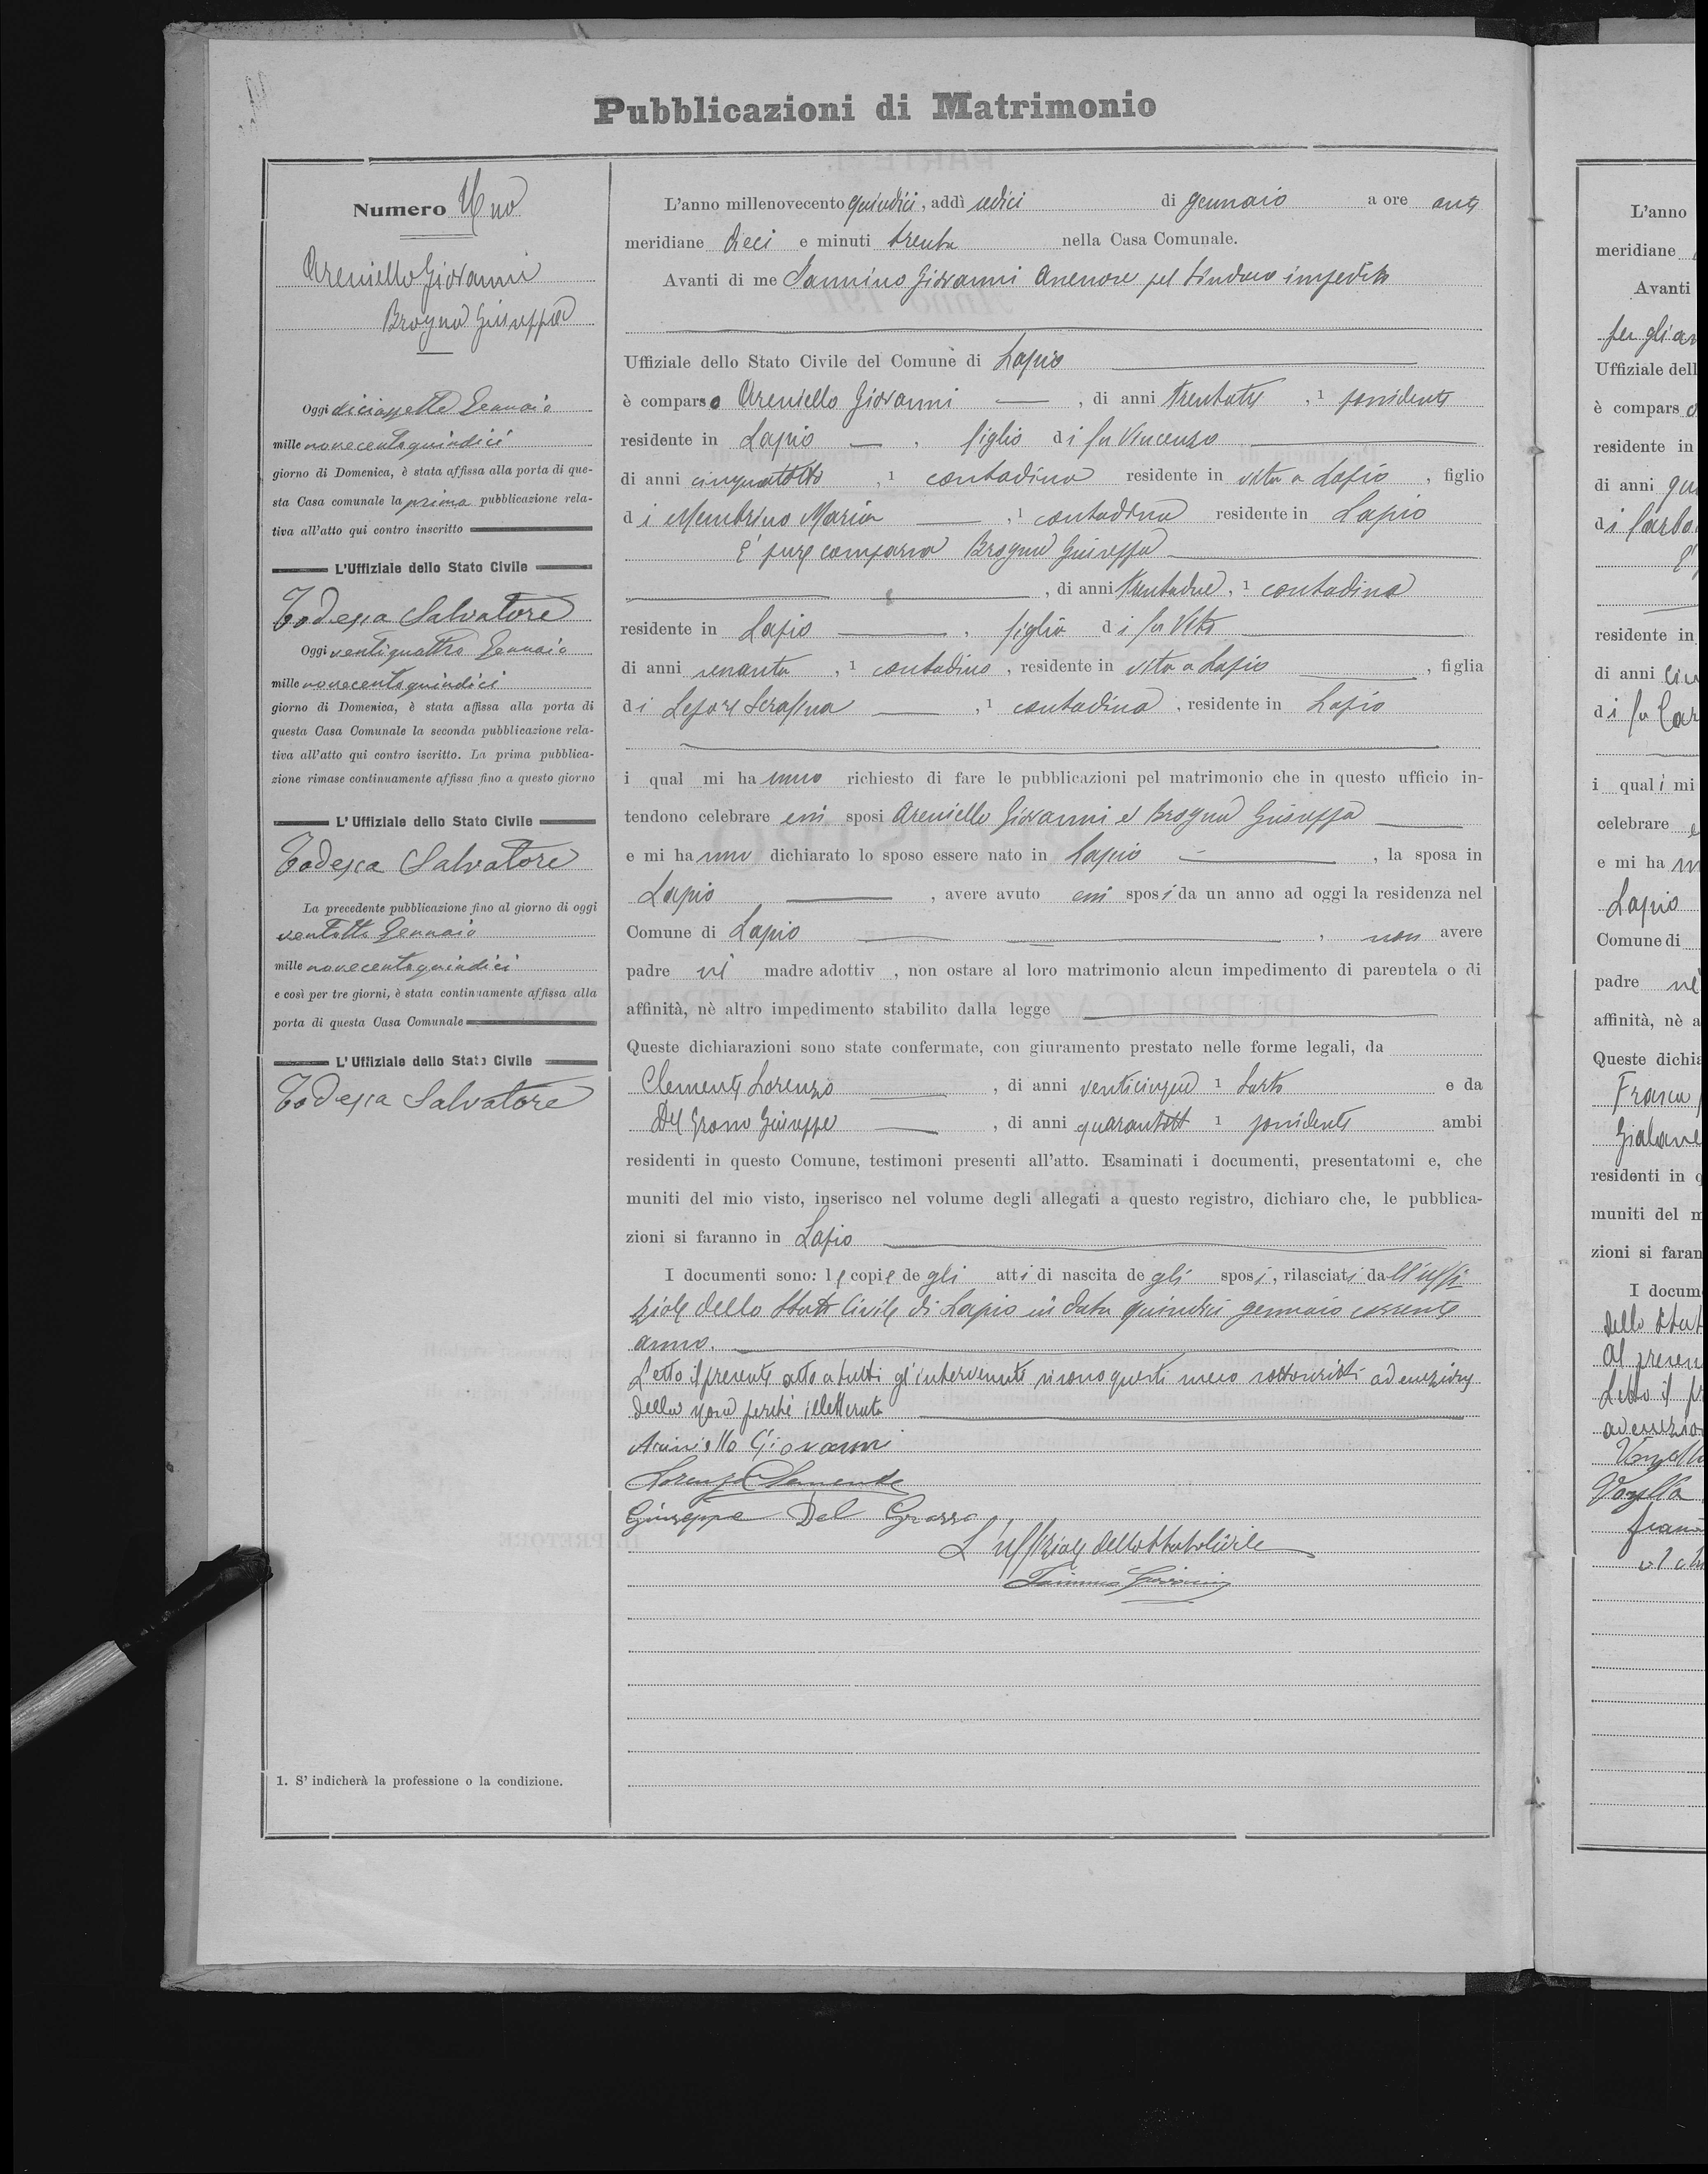 Pubblicazioni di Matrimonio
Numero Uno
Areniello Giovanni
Brogna Giuseppa
Oggi diciassette Gennaio
mille novecentoquindici
giorno di Domenica, è stata affissa alla porta di que-
sta Casa comunale la prima pubblicazione rela-
tiva all'atto qui contro inscritto
L'Uffiziale dello Stato Civile
Todesca Salvatore
Oggi ventiquattro Gennaio
mille novecentoquindici
giorno di Domenica, è stata affissa alla porta di
questa Casa Comunale la seconda pubblicazione rela-
tiva all'atto qui contro iscritto. La prima pubblica-
zione rimase continuamente affissa fino a questo giorno
L'Uffiziale dello Stato Civile
Todesca Salvatore
La precedente pubblicazione fino al giorno di oggi
ventotto Gennaio
mille novecentoquindici
e così per tre giorni, è stata continuamente affissa alla
porta di questa Casa Comunale
L'Uffiziale dello Stato Civile
Todesca Salvatore
1. S'indicherà la professione o la condizione.
L'anno millenovecento quindici, addì sedici di gennaio a ore anti
meridiane dieci e minuti trenta nella Casa Comunale.
Avanti di me Iannino Giovanni Assessore pel Sindaco impedito
Uffiziale dello Stato Civile del Comune di Lapio
è comparso Areniello Giovanni, di anni trentatre, 1 possidente
residente in Lapio, figlio di fu Vincenzo
di anni cinquantotto, 1 contadino residente in vita a Lapio, figlio
di Membrino Maria, 1 contadina residente in Lapio
E' pure comparsa Brogna Giuseppa
, di anni trentadue, 1 contadina
residente in Lapio, figlia di fu Vito
di anni sessanta, 1 contadino, residente in vita a Lapio, figlia
di Lepore Serafina, 1 contadina, residente in Lapio
i qual mi hanno richiesto di fare le pubblicazioni pel matrimonio che in questo ufficio in-
tendono celebrare essi sposi Areniello Giovanni e Brogna Giuseppa
e mi hanno dichiarato lo sposo essere nato in Lapio, la sposa in
Lapio, avere avuto essi sposi da un anno ad oggi la residenza nel
Comune di Lapio, non avere
padre nè madre adottiv, non ostare al loro matrimonio alcun impedimento di parentela o di
affinità, nè altro impedimento stabilito dalla legge
Queste dichiarazioni sono state confermate, con giuramento prestato nelle forme legali, da
Clemente Lorenzo, di anni venticinque 1 Sarto e da
Del Grosso Giuseppe, di anni quarantott 1 possidente ambi
residenti in questo Comune, testimoni presenti all'atto. Esaminati i documenti, presentatomi e, che
muniti del mio visto, inserisco nel volume degli allegati a questo registro, dichiaro che, le pubblica-
zioni si faranno in Lapio
I documenti sono: le copie degli atti di nascita degli sposi, rilasciati dall'uffi
ziale dello Stato Civile di Lapio in data quindici gennaio corrente
anno.
Letto il presente atto a tutti gl'intervenuti, si sono questi meco sottoscritti ad eccezione
della sposa perchè illetterata
Areniello Giovanni
Lorenzo Clemente
Giuseppe Del Grosso
L'uffiziale dello Stato Civile
Iannino Giovanni
L'anno
meridiane
Avanti
Uffiziale dell
è compars o
residente in
di anni
di
residente in
di anni
di fu
i quali mi
celebrare
e mi ha
Lapio
Comune di
padre nè
affinità, nè a
Queste dichia
residenti in q
muniti del m
zioni si faran
I docum